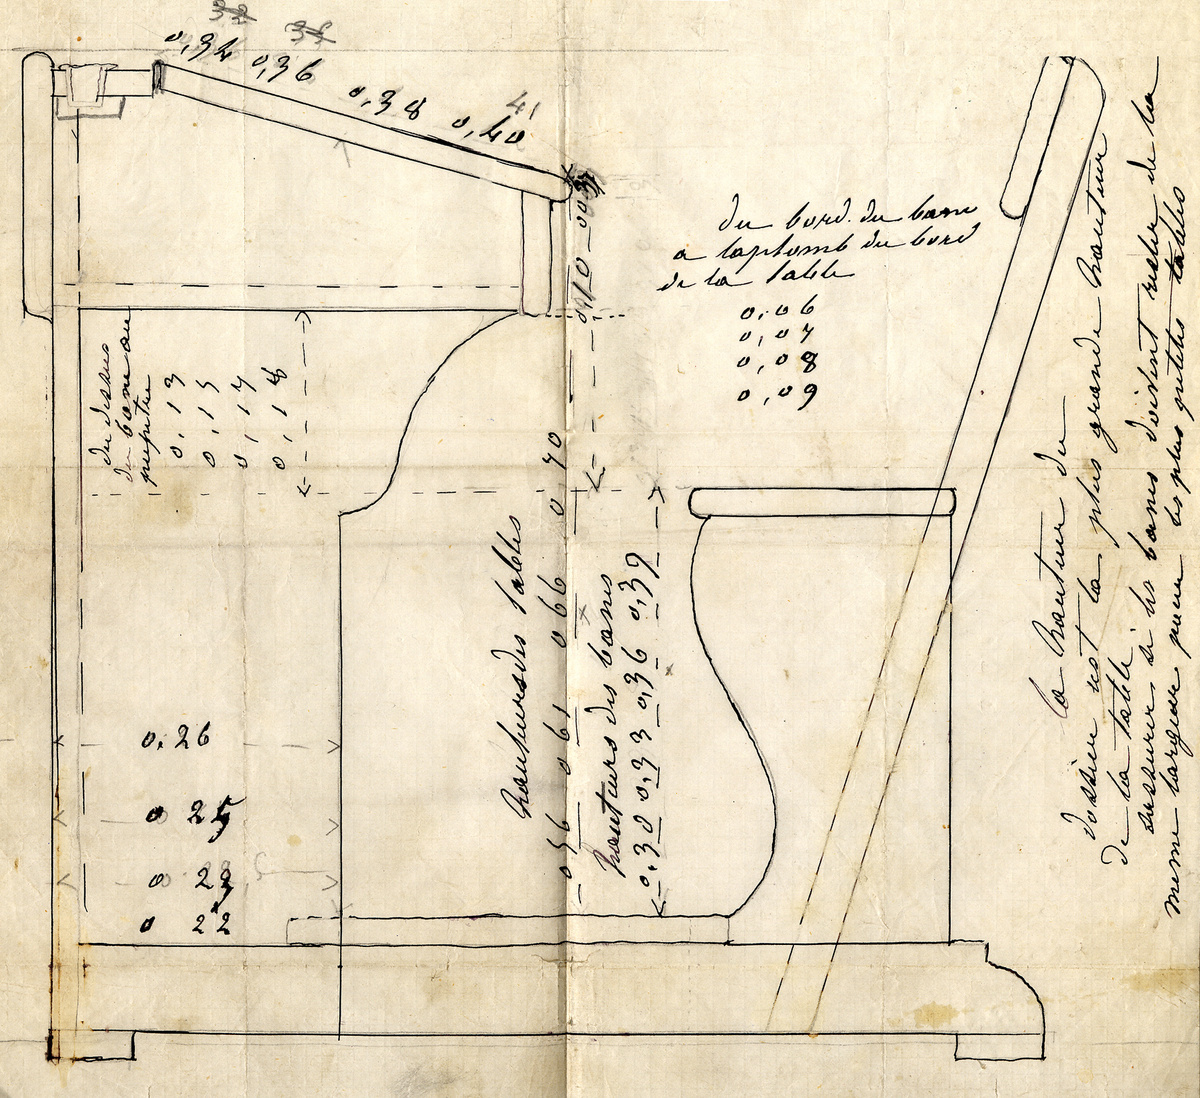 32
34
0,34
0,36
0,38
41
0,40
du bord du banc
a laplomb du bord
de la table
0,06
0,07
0,08
0,09
du dessus
du banc au
pupitre
0,13
0,15
0,17
0,18
hauteurs des tables
0 56 0 61 0 66 0 70
hauteurs des bancs
0,30 0,33 0,36 0,39
0,26
0 25
0 23
0 22
la hauteur du
dossier est la plus grande hauteur
de la table
assurer si les bancs doivent rester de la
meme largeur pour les plus petites tables